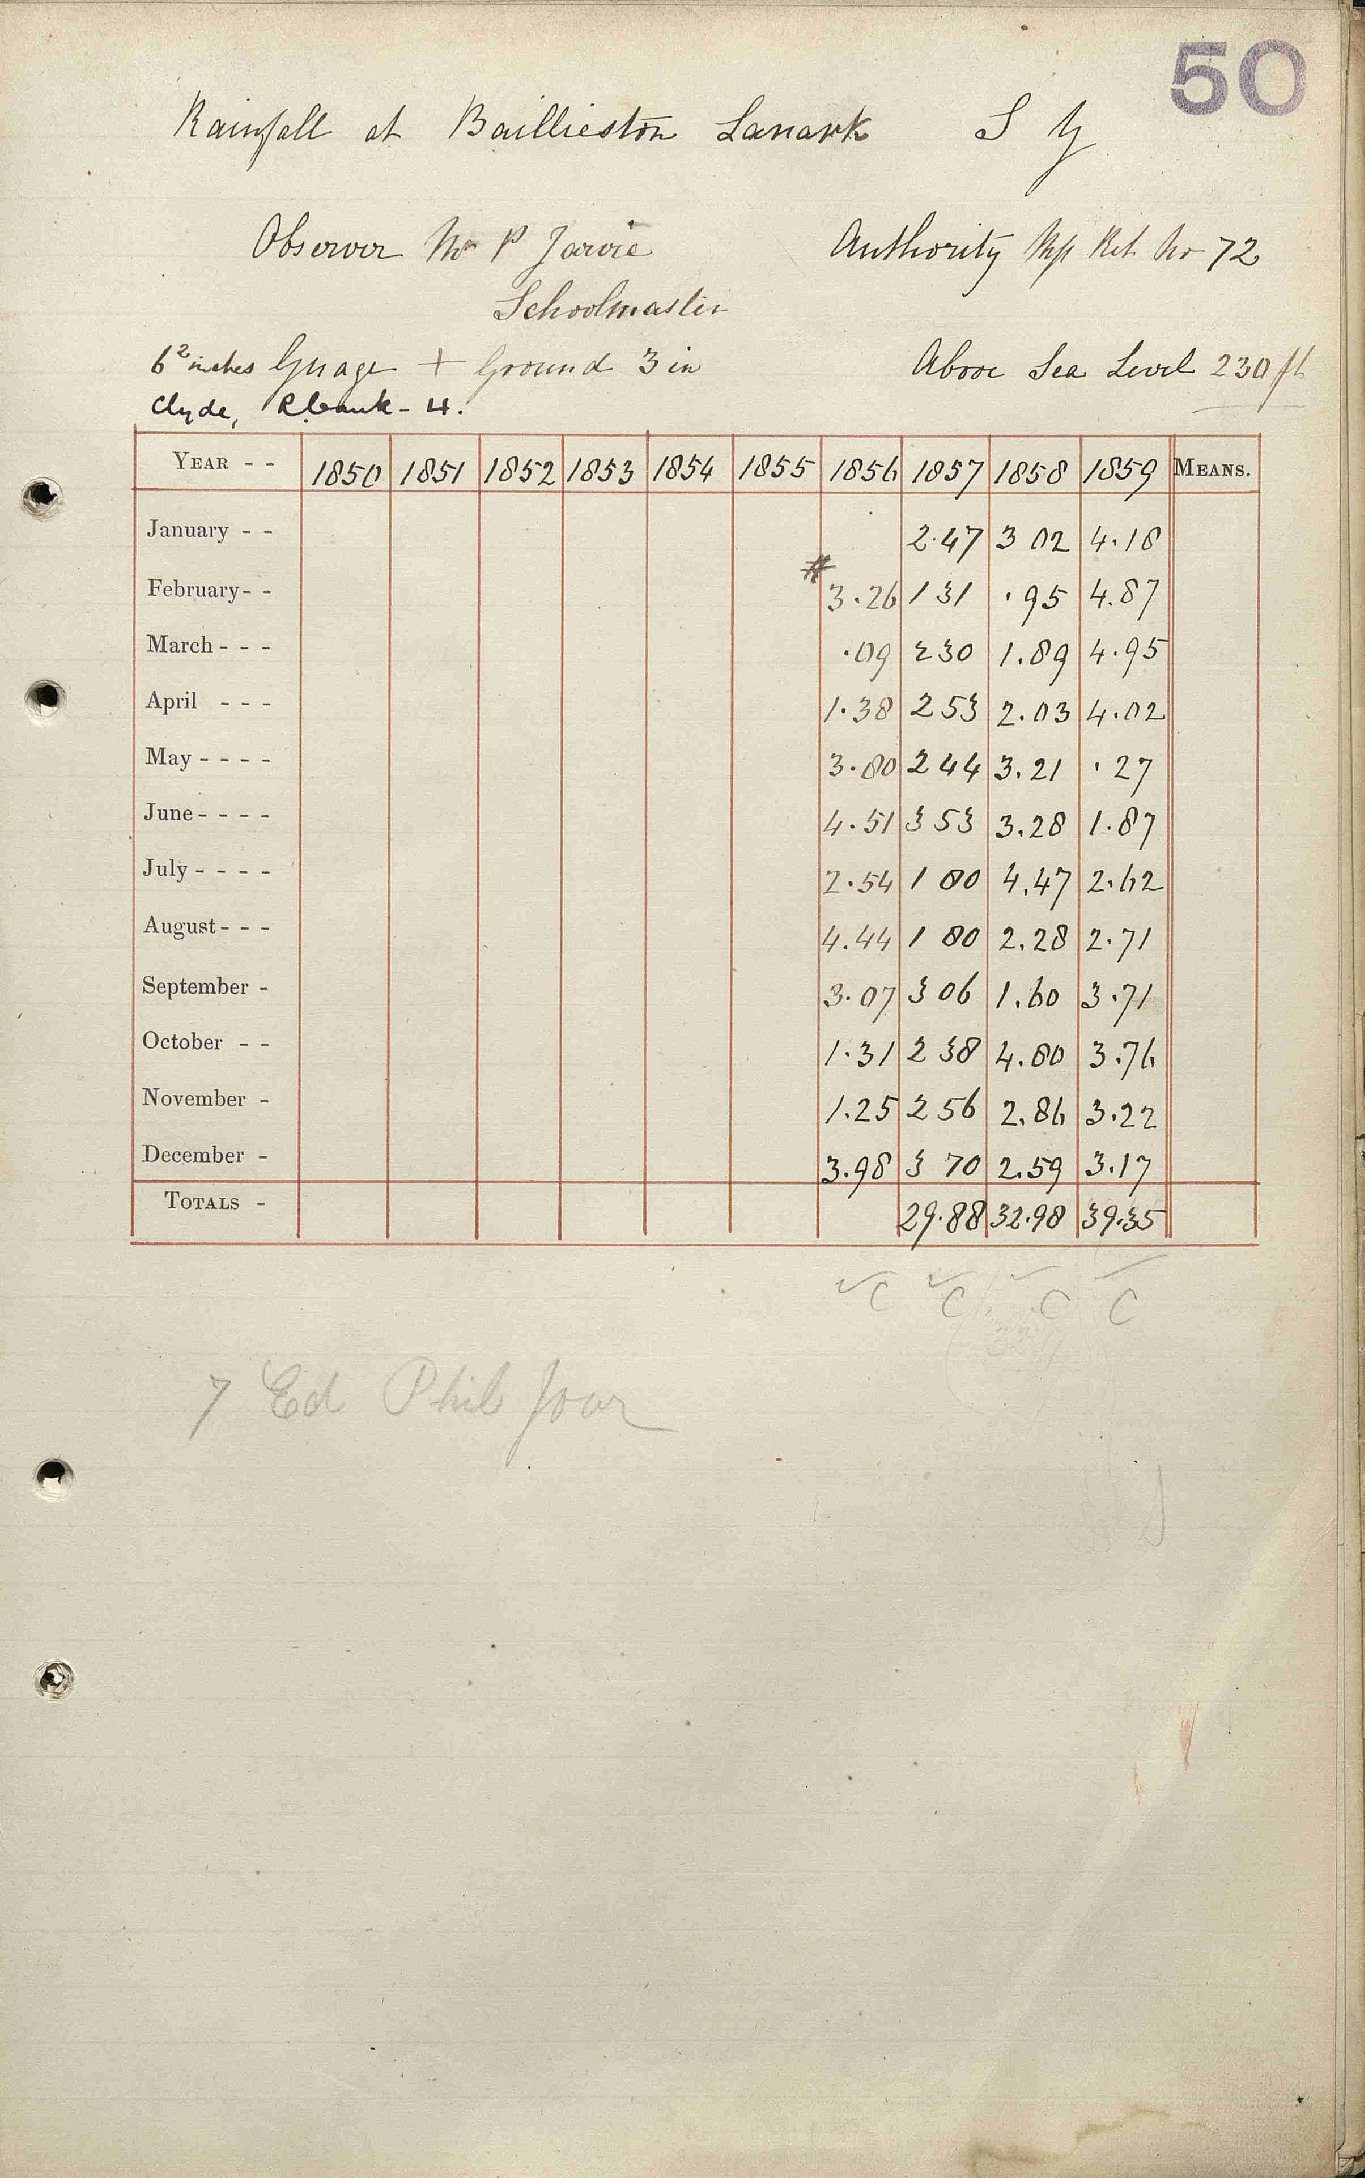 50
Rainfall at Baillieston Lanark S
Observer Mr P Jarvie Authority Ret No 72
Schoolmaster
6² inches Guage + Ground 3 in Above Sea Level 230 ft
Clyde, R.bank - 4.
YEAR - - 1850 1851 1852 1853 1854 1855 1856 1857 1858 1859 MEANS.
January - - 2.47 3 02 4.18
February - - # 3.26 1 31 .95 4.87
March - - - .09 2 30 1.89 4.95
April - - - 1.38 2 53 2.03 4.02
May - - - - 3.80 2 44 3.21 .27
June - - - - 4.51 3 53 3.28 1.87
July - - - - 2.54 1 80 4.47 2.62
August - - - 4.44 1 80 2.28 2.71
September - 3.07 3 06 1.60 3.71
October - - 1.31 2 38 4.80 3.76
November - 1.25 2 56 2.86 3.22
December - 3.98 3 70 2.59 3.17
TOTALS - 29.88 32.98 39.35
✓C ✓C ✓C ✓C
7 Ed Phil Jour